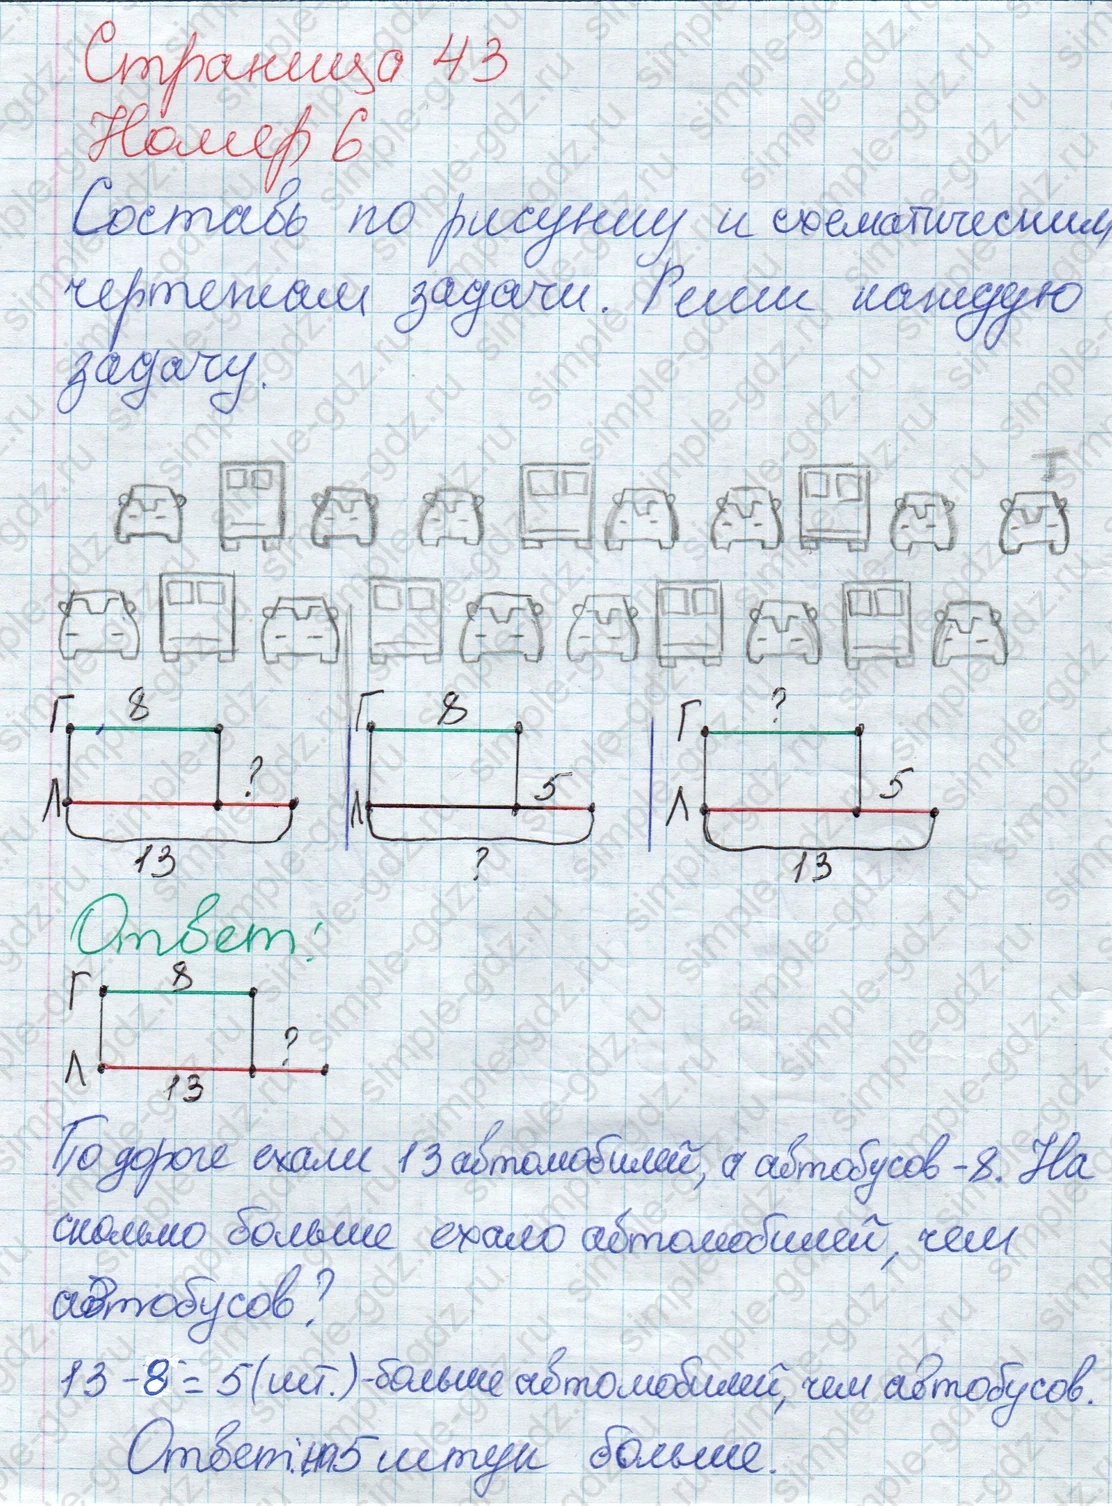 Страница 43
Номер 6
Составь по рисунку и схематическим
чертежам задачи. Реши каждую
задачу.
Г 8
Л ?
13
Г 8
Л 5
?
Г ?
Л 5
13
Ответ:
Г 8
Л 13 ?
По дороге ехали 13 автомобилей, а автобусов - 8. На
сколько больше ехало автомобилей, чем
автобусов?
13 - 8 = 5 (шт.) - больше автомобилей, чем автобусов.
Ответ: на 5 штук больше.
simple-gdz.ru